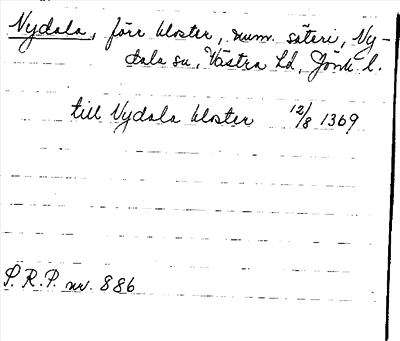 Nydala, förr kloster, num. säteri, Ny-
dala sn, Västra hd, Jönk. l.
till Nydala kloster 12/8 1369
S.R.P. nr. 886